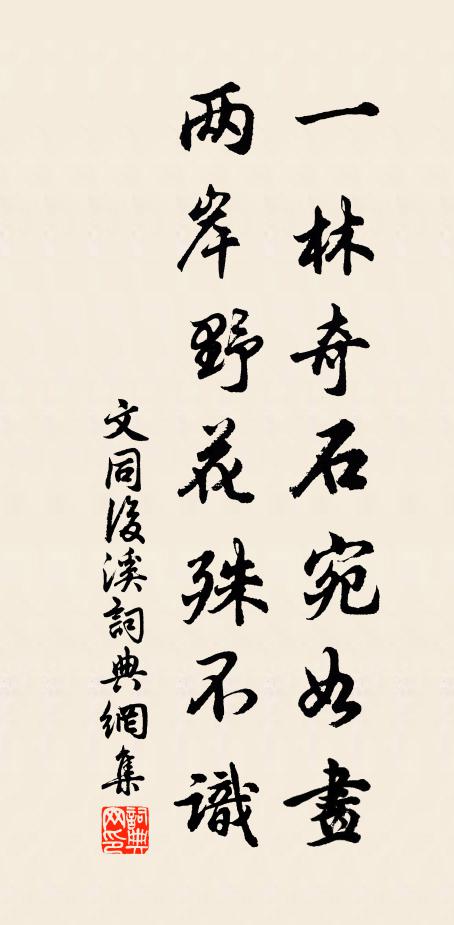 一林奇石宛如畫
两岸野花殊不識
文同後溪詞典網集
詞典網印